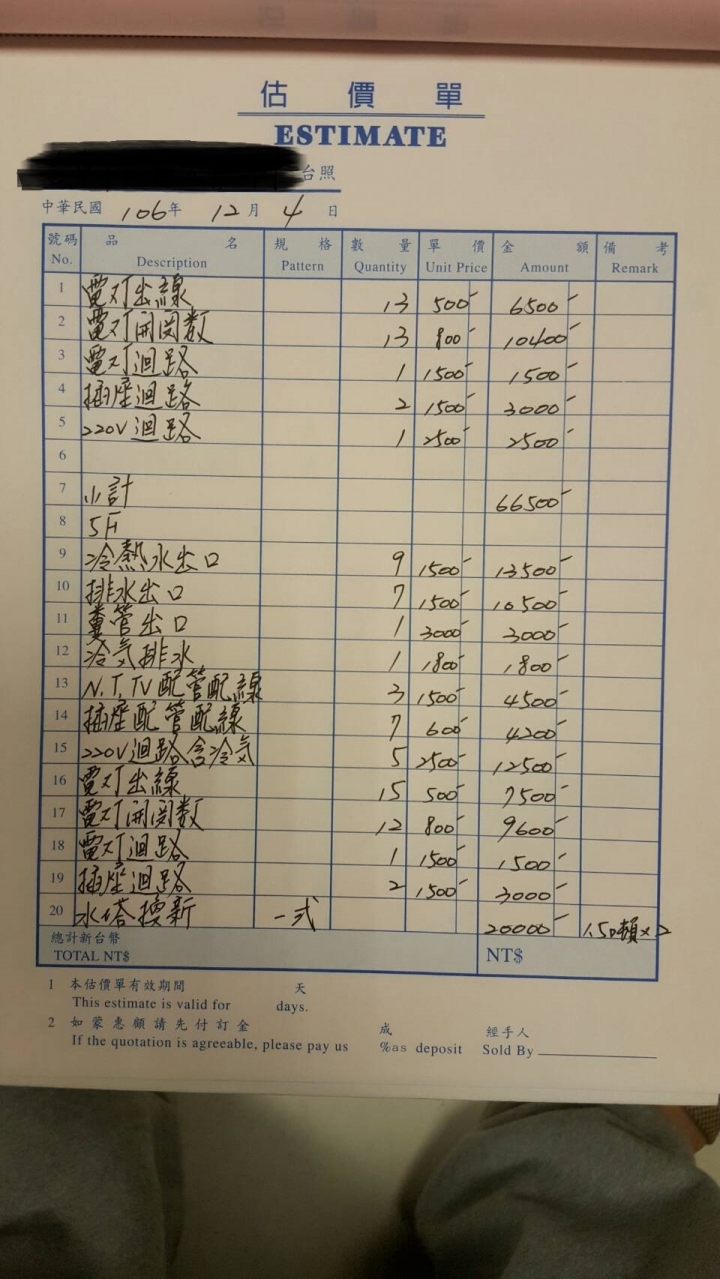 估價單
ESTIMATE
台照
中華民國 106年 12月 4日
號碼 品名 規格 數量 單價 金額 備考
No. Description Pattern Quantity Unit Price Amount Remark
1 電灯出線 13 500- 6500-
2 電灯開関数 13 800- 10400-
3 電灯迴路 1 1500- 1500-
4 插座迴路 2 1500- 3000-
5 220V迴路 1 2500- 2500-
6
7 小計 66500-
8 5F
9 冷熱水出口 9 1500- 13500-
10 排水出口 7 1500- 10500-
11 糞管出口 1 3000- 3000-
12 冷気排水 1 1800- 1800-
13 N.T,TV配管配線 3 1500- 4500-
14 插座配管配線 7 600- 4200-
15 220V迴路含冷気 5 2500- 12500-
16 電灯出線 15 500- 7500-
17 電灯開関数 12 800- 9600-
18 電灯迴路 1 1500- 1500-
19 插座迴路 2 1500- 3000-
20 水塔換新 一式 20000- 1.5噸×2
總計新台幣
TOTAL NT$ NT$
1 本估價單有效期間 天
This estimate is valid for days.
2 如蒙惠顧請先付訂金 成 經手人
If the quotation is agreeable, please pay us %as deposit Sold By